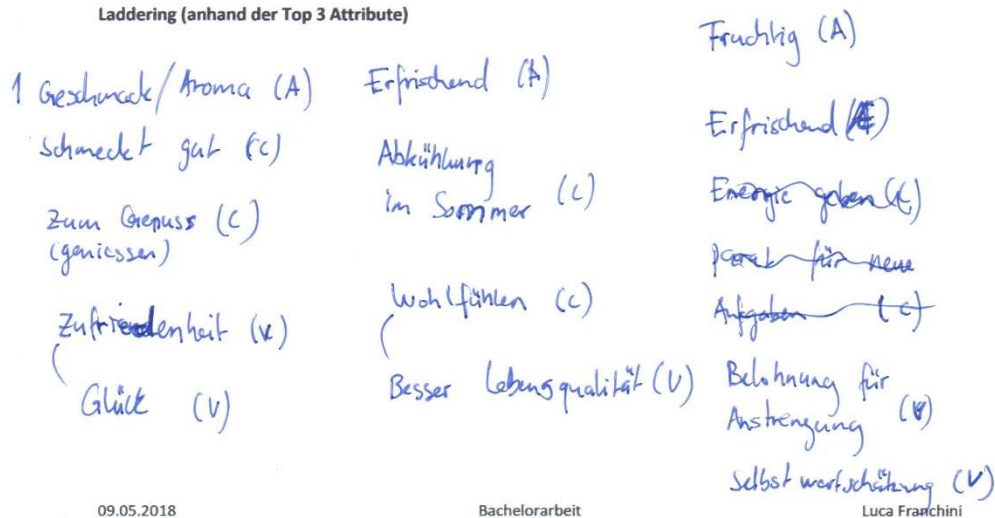 Laddering (anhand der Top 3 Attribute)
1 Geschmack/Aroma (A)
schmeckt gut (C)
zum Genuss (C)
(geniessen)
Zufriedenheit (V)
Glück (V)
Erfrischend (A)
Abkühlung
im Sommer (C)
Wohlfühlen (C)
Besser Lebensqualität (V)
Fruchtig (A)
Erfrischend
Energie geben (C)
parat für neue
Aufgaben (C)
Belohnung für
Anstrengung (V)
Selbstwertschätzung (V)
09.05.2018
Bachelorarbeit
Luca Franchini